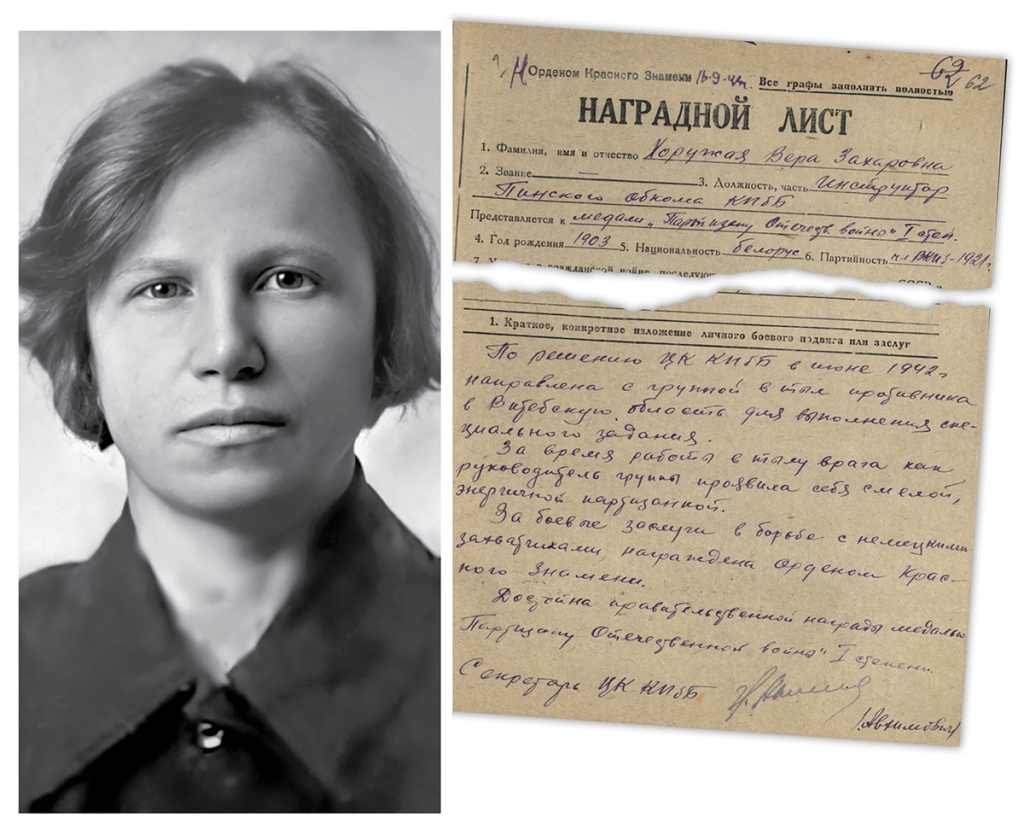 Н Орденом Красного Знамени 16-9-42г.
69/2 62
Все графы заполнять полностью
НАГРАДНОЙ ЛИСТ
1. Фамилия, имя и отчество Хоружая Вера Захаровна
2. Звание — 3. Должность, часть Инструктор
Пинского обкома КПбБ
Представляется к медали „Партизану Отечеств. войны" I степ.
4. Год рождения 1903 5. Национальность белорус 6. Партийность чл. 1921г.
1. Краткое, конкретное изложение личного боевого подвига или заслуг
По решению ЦК КПбБ в июне 1942г
направлена с группой в тыл противника
в Витебскую область для выполнения спе-
циального задания.
За время работы в тылу врага как
руководитель группы проявила себя смелой,
энергичной партизанкой.
За боевые заслуги в борьбе с немецкими
захватчиками, награждена Орденом Крас-
ного Знамени.
Достойна правительственной награды медалью
Партизану Отечественной войны" I степени.
Секретарь ЦК КПбБ
/Авхимович/